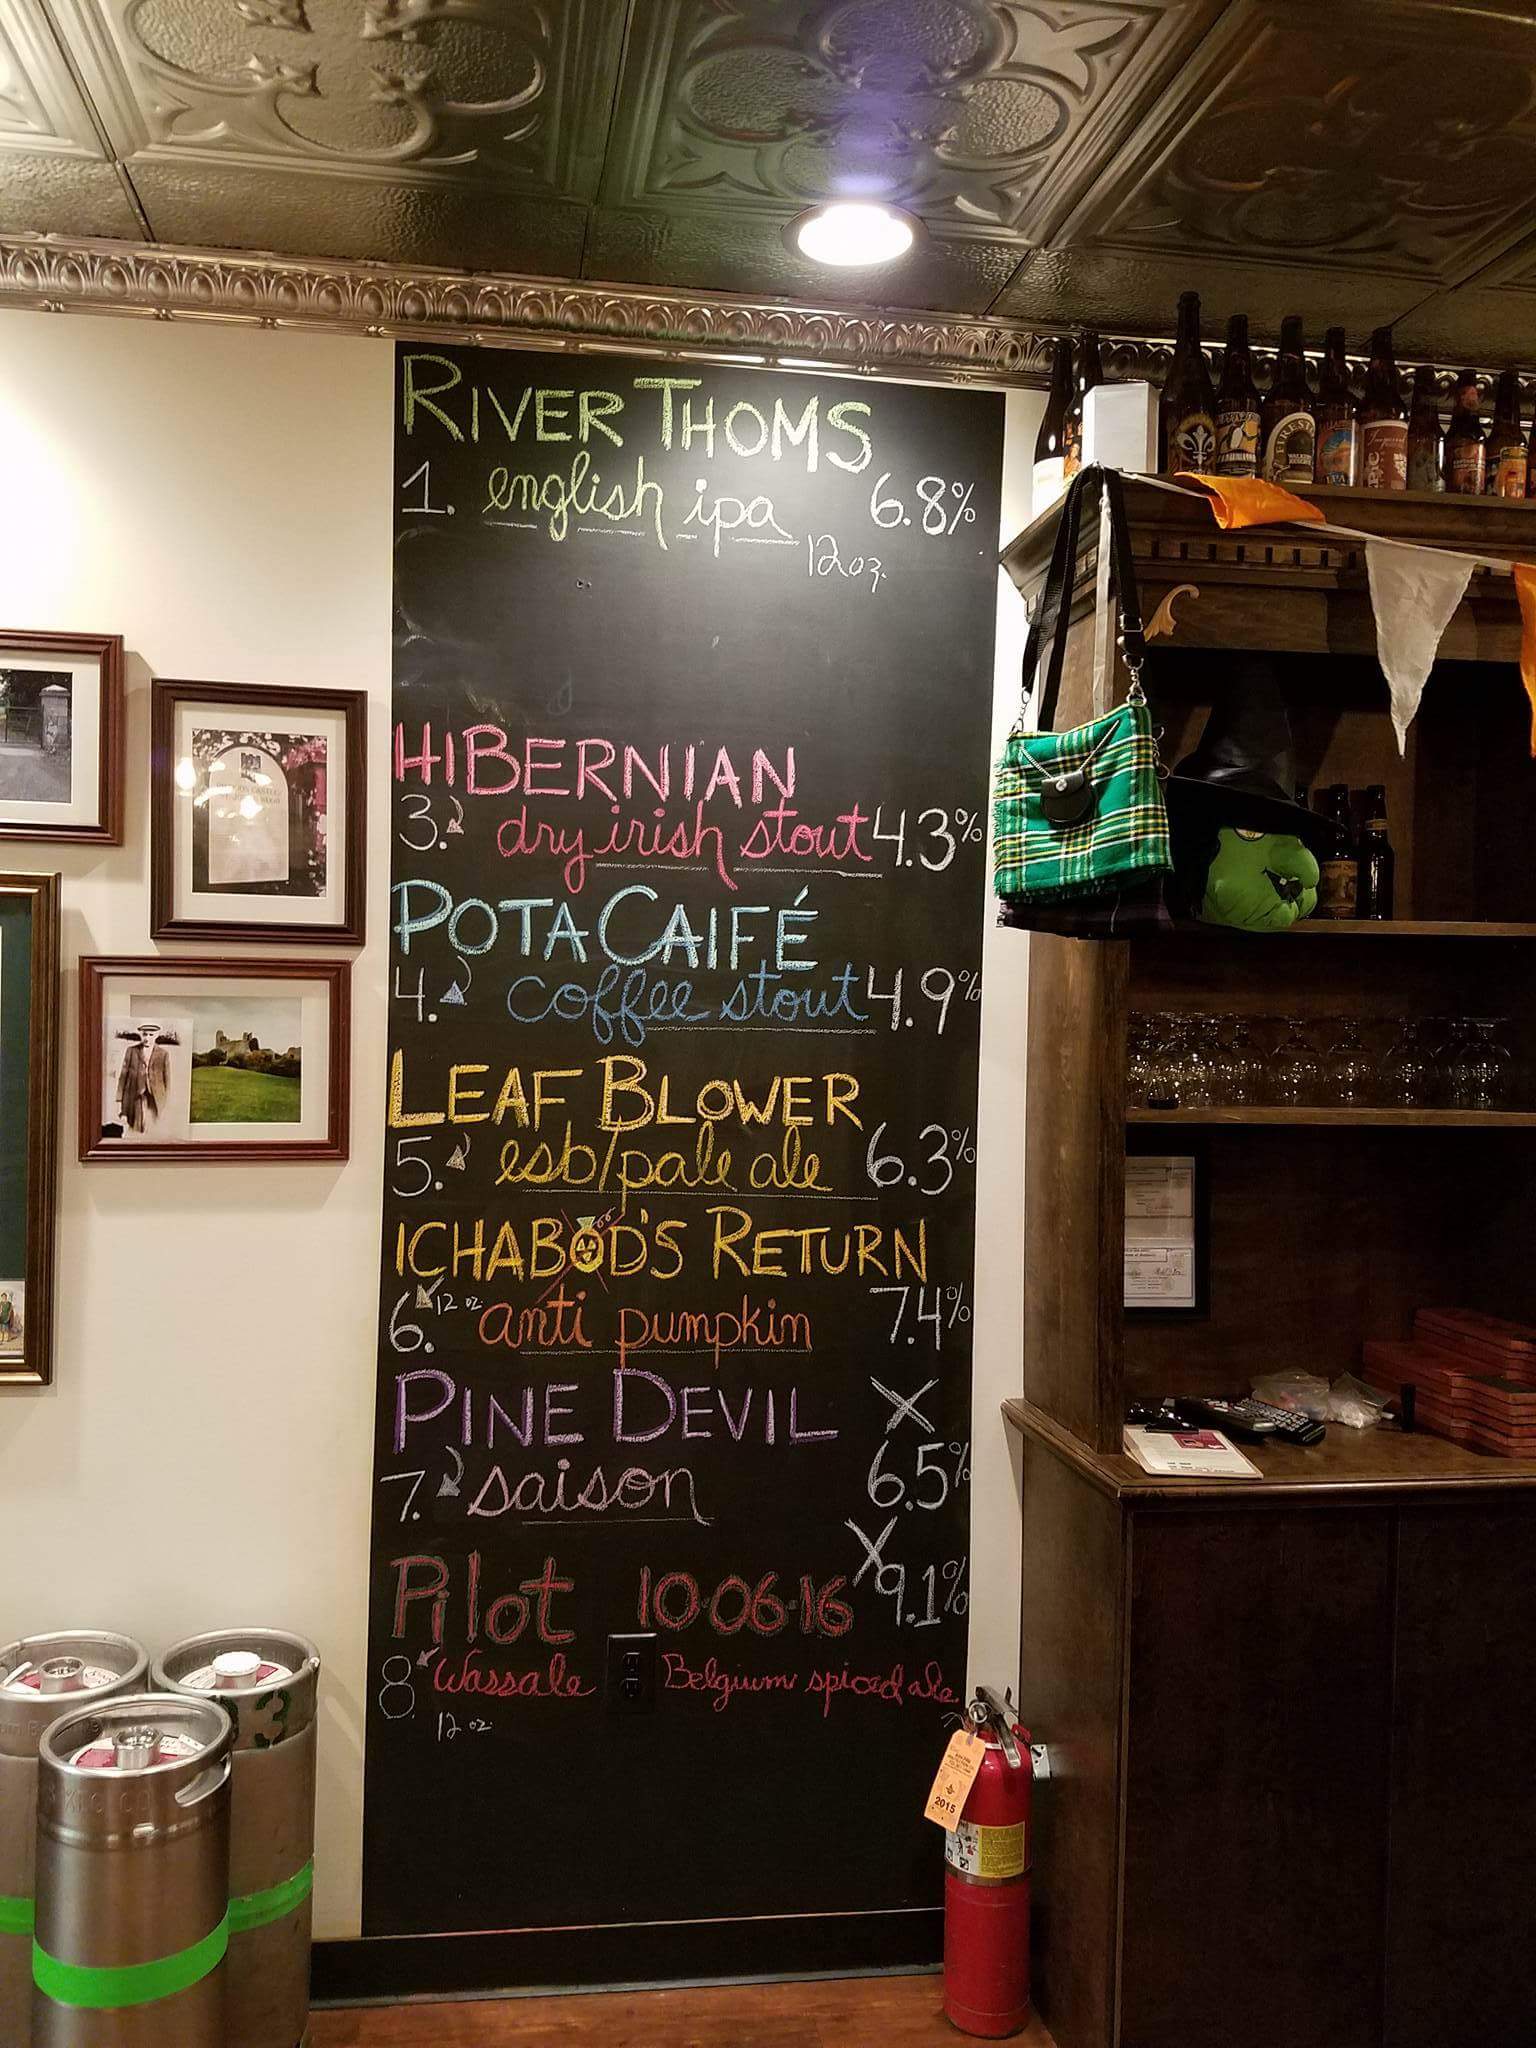 RIVER THOMS
1. english ipa 6.8%
12oz.
HIBERNIAN
3. dry irish stout 4.3%
POTA CAIFÉ
4. coffee stout 4.9%
LEAF BLOWER
5. esb/pale ale 6.3%
ICHABOD'S RETURN
6. 12 oz. anti pumpkin 7.4%
PINE DEVIL X
7. saison 6.5%
Pilot 10·06·16 X 9.1%
8. Wassale Belgium spiced ale
12 oz.
2015